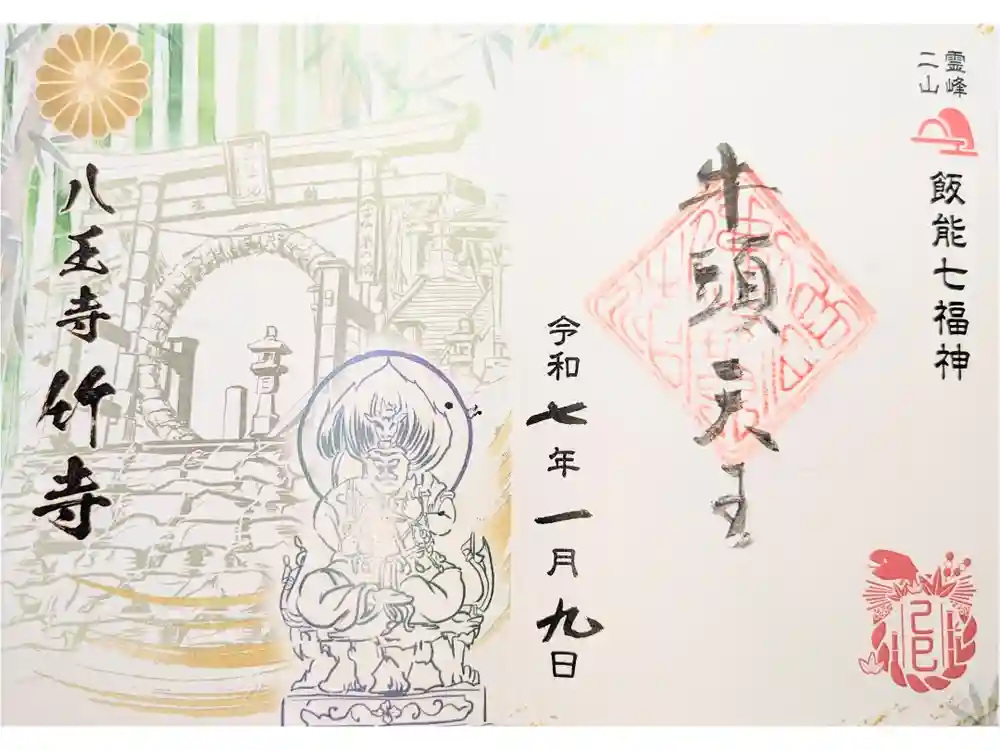 霊峰
二山
飯能七福神
牛頭天王
令和七年一月九日
八王寺竹寺